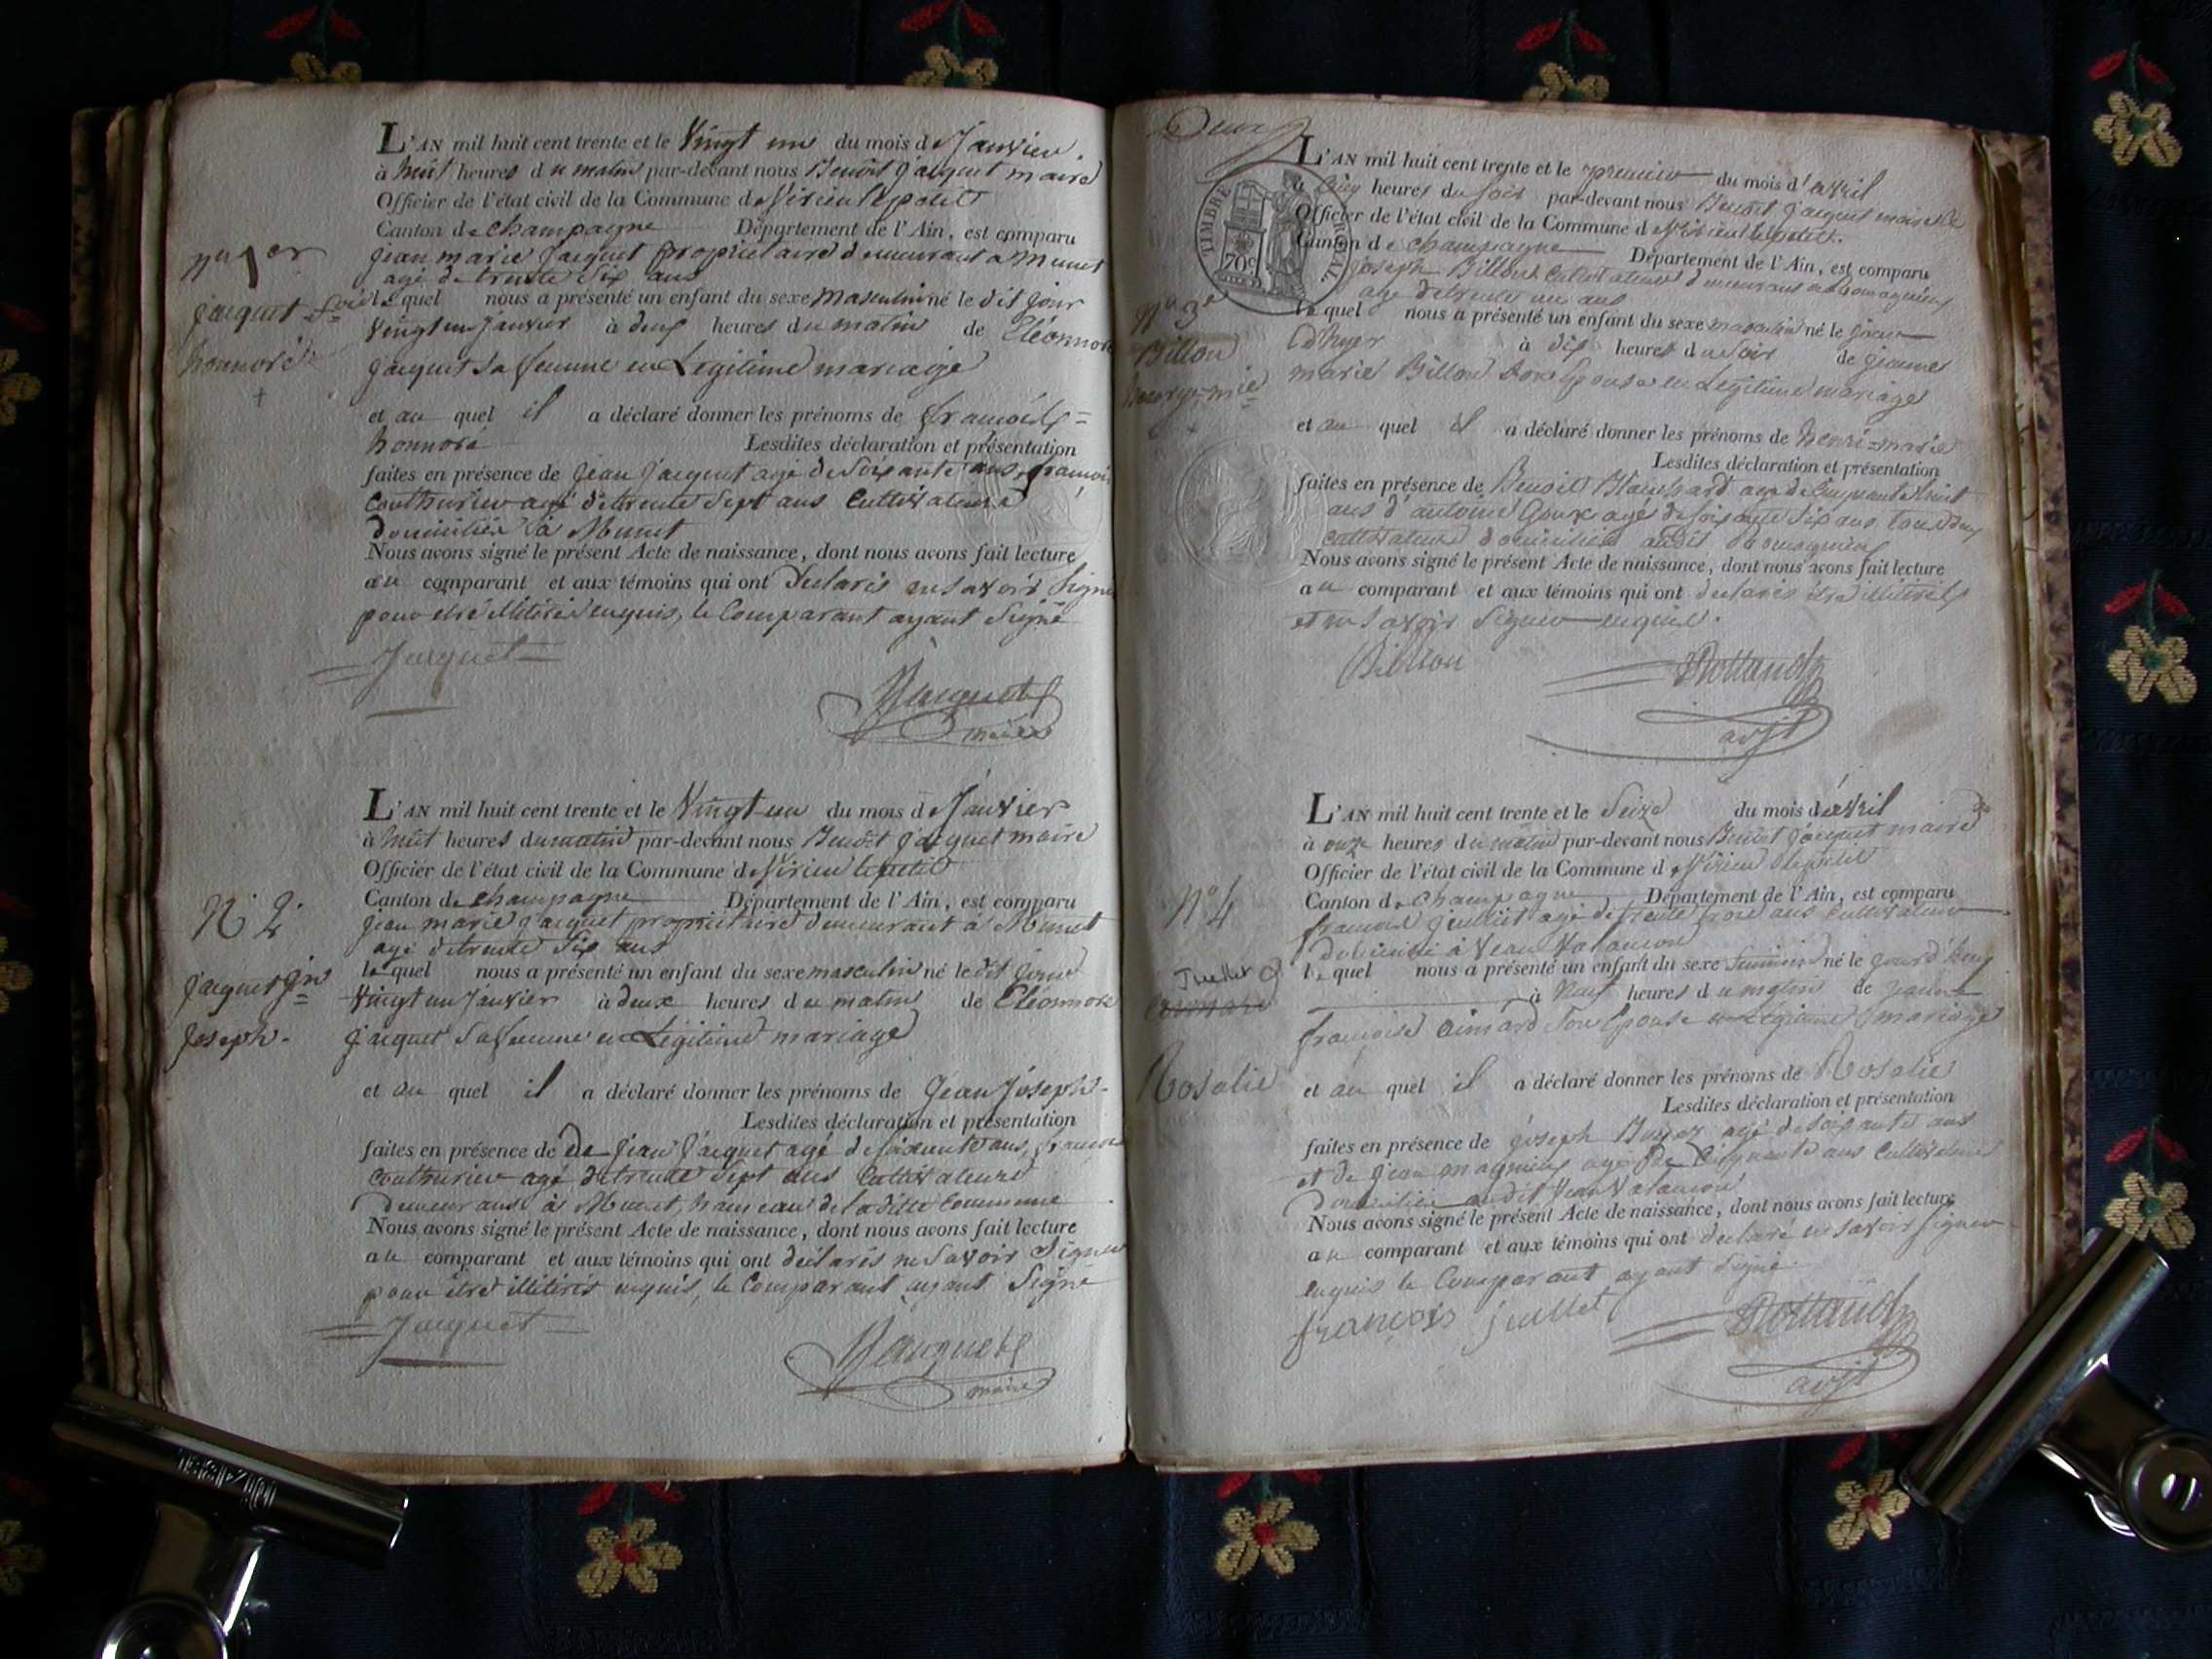 L'AN mil huit cent trente et le Vingt un du mois de Janvier
à huit heures du matin par-devant nous Benoit Jacquet maire
Officier de l'état civil de la Commune de Virieu le petit
Canton de Champagne Département de l'Ain, est comparu
n° 1er
jean marie Jacquet propriétaire demeurant à Munet
agé de trente six ans
Jacquet
lequel nous a présenté un enfant du sexe masculin né le dit jour
vingt un janvier à deux heures du matin de Eléonnore
honnoré
jacquet sa femme en Legitime mariage
et au quel il a déclaré donner les prénoms de françois =
honnoré Lesdites déclaration et présentation
faites en présence de jean jacquet agé de soixante ans, françois
Couthurier agé de trente sept ans Cultivateurs
domiciliés à Munet
Nous avons signé le présent Acte de naissance, dont nous avons fait lecture
au comparant et aux témoins qui ont déclarés ne savoir signer
pour être illitérés enquis, le Comparant ayant signé
Jacquet
BJacquet
maire
L'AN mil huit cent trente et le Vingt-un du mois de Janvier
à huit heures du matin par-devant nous Benoit jacquet maire
Officier de l'état civil de la Commune de Virieu le petit
Canton de Champagne Département de l'Ain, est comparu
N° 2
jean marie jacquet propriétaire demeurant à Munet
agé de trente six ans
jacquet jn
lequel nous a présenté un enfant du sexe masculin né le dit jour
vingt un janvier à deux heures du matin de Eléonnore
joseph.
jacquet sa femme en Légitime mariage
et au quel il a déclaré donner les prénoms de Jean Joseph.
Lesdites déclaration et présentation
faites en présence de De jean jacquet agé de soixante ans, françois
Couthurier agé de trente sept ans Cultivateurs
demeurans à Munet, hameau de la ditte Commune
Nous avons signé le présent Acte de naissance, dont nous avons fait lecture
au comparant et aux témoins qui ont déclarés ne savoir signer
pour être illitérés enquis, le Comparant ayant signé
Jacquet
BJacquet
maire
Deux
L'AN mil huit cent trente et le premier du mois d'avril
à cinq heures du soir par-devant nous Benoit Jacquet maire
Officier de l'état civil de la Commune de Virieu le petit.
Canton de Champagne Département de l'Ain, est comparu
TIMBRE ROYAL
70c
joseph Billon Cultivateur demeurant à
agé de trente un ans
n° 3e
lequel nous a présenté un enfant du sexe masculin né le jour
Billon
d'hyer à dix heures du soir de jeanne
henry-mie
marie Billon son Epouse en Legitime mariage
et au quel il a déclaré donner les prénoms de henri=marie
Lesdites déclaration et présentation
faites en présence de Benoit Blanchard agé de cinquante huit
ans d'antoine agé de soixante six ans tous deux
cultivateurs domiciliés audit
Nous avons signé le présent Acte de naissance, dont nous avons fait lecture
au comparant et aux témoins qui ont déclarés être illitérés
et ne savoir signer enquis.
Billion
Rottand
adjt
L'AN mil huit cent trente et le Seize du mois d'avril
à onze heures du matin par-devant nous Benoit jacquet maire
Officier de l'état civil de la Commune de Virieu le petit
Canton de Champagne Département de l'Ain, est comparu
N° 4
françois juillet agé de trente trois ans cultivateur
domicilié à
Juillet
lequel nous a présenté un enfant du sexe feminin né le jourd'huy
à neuf heures du matin de jeanne
françoise aimard son Epouse en Légitime mariage
Rosalie
et au quel il a déclaré donner les prénoms de Rosalie
Lesdites déclaration et présentation
faites en présence de joseph agé de soixante ans
et de jean magnin agé de cinquante ans Cultivateurs
domiciliés audit
Nous avons signé le présent Acte de naissance, dont nous avons fait lecture
au comparant et aux témoins qui ont déclaré ne savoir signer
enquis le Comparant ayant signé
françois juillet
Rottand
adjt